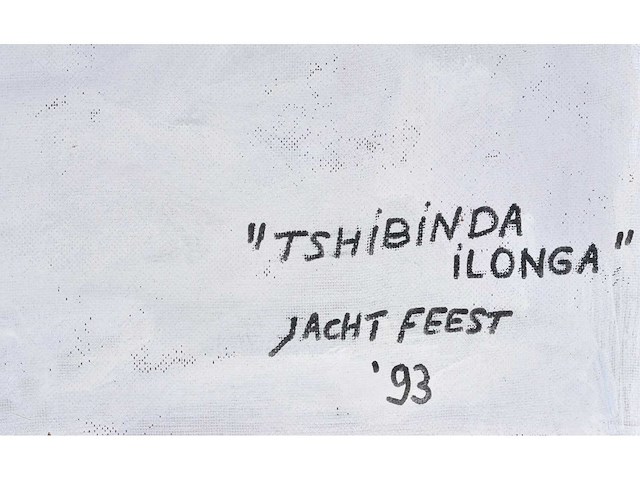 "TSHiBiNDA
iLONGA"
JACHT FEEST
'93